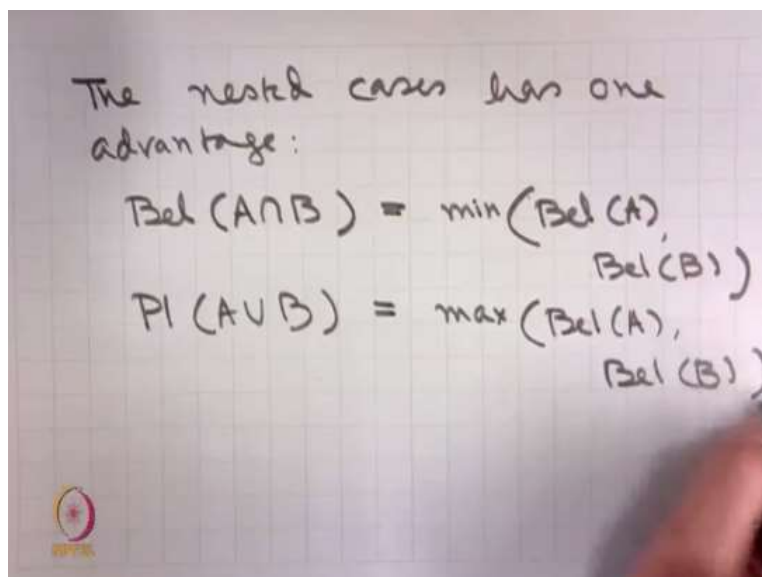 The nested cases has one
advantage:
Bel (A∩B) = min (Bel (A),
Bel (B))
Pl (A∪B) = max (Bel (A),
Bel (B))
NPTEL